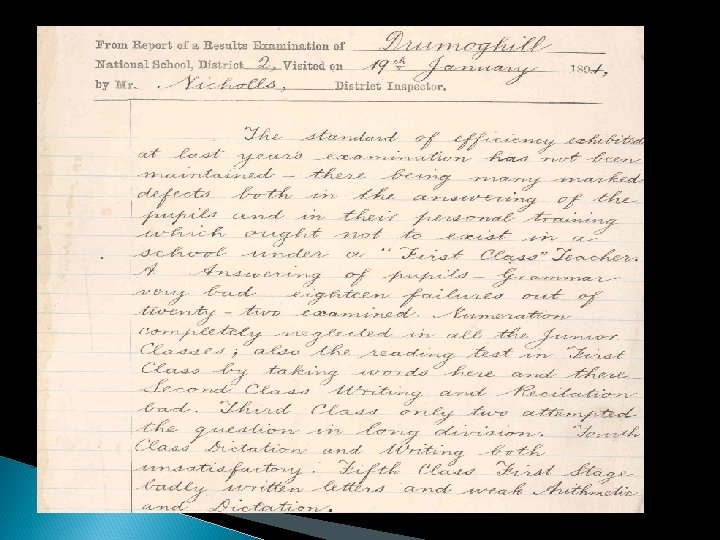 From Report of a Results Examination of Drumoghill
National School, District 2, Visited on 19th January 1894,
by Mr. Nicholls, District Inspector.
The standard of efficiency exhibited
at last year's examination has not been
maintained - there being many marked
defects both in the answering of the
pupils and in their personal training
which ought not to exist in a
school under a "First Class" Teacher.
A Answering of pupils - Grammar
very bad eighteen failures out of
twenty-two examined. Numeration
completely neglected in all the Junior
Classes; also the reading test in First
Class by taking words here and there
Second Class Writing and Recitation
bad. Third Class only two attempted
the question in long division. Fourth
Class Dictation and Writing both
unsatisfactory. Fifth Class First Stage
badly written letters and weak Arithmetic
and Dictation.